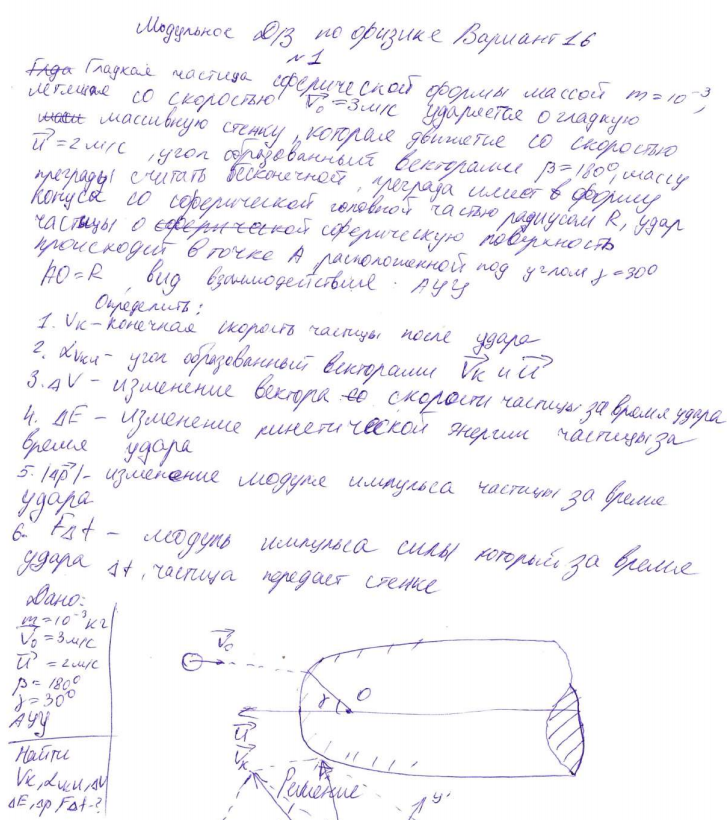 Модульное ДЗ по физике Вариант 16
№1
Гладкая частица сферической формы массой m=10⁻³,
летящая со скоростью V₀=3м/с ударяется о гладкую
массивную стенку, которая движется со скоростью
U=2м/с, угол образованный векторами β=180°, массу
преграды считать бесконечной, преграда имеет форму
конуса со сферической головной частью радиусом R, удар
частицы о сферическую поверхность
происходит в точке А расположенной под углом γ=30°
AO=R, вид взаимодействия АУУ
Определить:
1. Vк – конечная скорость частицы после удара
2. αVкu – угол образованный векторами Vк и U
3. ΔV – изменение вектора скорости частицы за время удара
4. ΔE – изменение кинетической энергии частицы за
время удара
5. |Δp| – изменение модуля импульса частицы за время
удара
6. FΔt – модуль импульса силы который за время
удара Δt, частица передает стенке
Дано:
m=10⁻³кг
V₀=3м/с
U=2м/с
β=180°
γ=30°
АУУ
Найти
Vк, αVкu, ΔV
ΔE, Δp FΔt-?
V₀
γ
O
U
Vк
Решение
y'